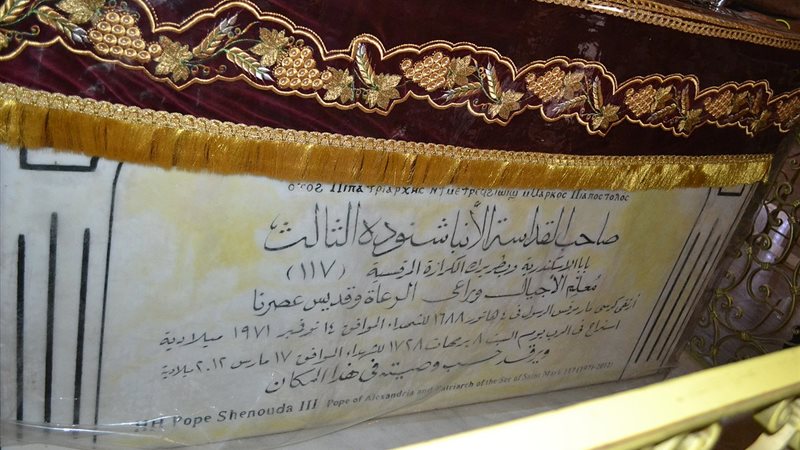 ⲡⲓⲡⲁⲧⲣⲓⲁⲣⲭⲏⲥ ⲙⲁⲣⲕⲟⲥ ⲡⲓⲁⲡⲟⲥⲧⲟⲗⲟⲥ
صاحب القداسة الأنبا شنوده الثالث
بابا الإسكندرية وبطريرك الكرازة المرقسية (١١٧)
مُعلم الأجيال وراعى الرعاة وقديس عصرنا
أرتقى كرسى مار مرقس الرسول فى ٤ هاتور ١٦٨٨ للشهداء الموافق ١٤ نوفمبر ١٩٧١ ميلادية
استراح فى الرب يوم السبت ٨ برمهات ١٧٢٨ للشهداء الموافق ١٧ مارس ٢٠١٢ ميلادية
ويرقد حسب وصيته فى هذا المكان
HH Pope Shenouda III Pope of Alexandria and Patriarch of the See of Saint Mark 117 (1971-2012)